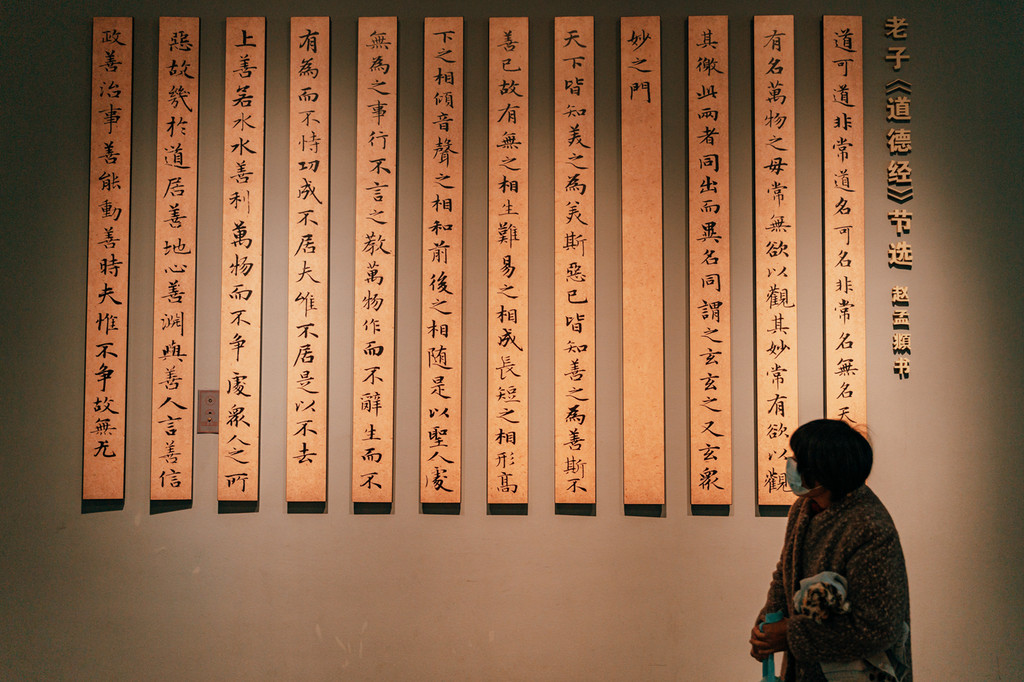 老子《道德经》节选 赵孟頫书
道可道非常道名可名非常名無名天
有名萬物之母常無欲以觀其妙常有欲以觀
其徼此兩者同出而異名同謂之玄玄之又玄衆
妙之門
天下皆知美之為美斯惡已皆知善之為善斯不
善已故有無之相生難易之相成長短之相形高
下之相傾音聲之相和前後之相随是以聖人處
無為之事行不言之教萬物作而不辭生而不
有為而不恃功成不居夫惟不居是以不去
上善若水水善利萬物而不争處衆人之所
惡故幾於道居善地心善淵與善人言善信
政善治事善能動善時夫惟不争故無尤